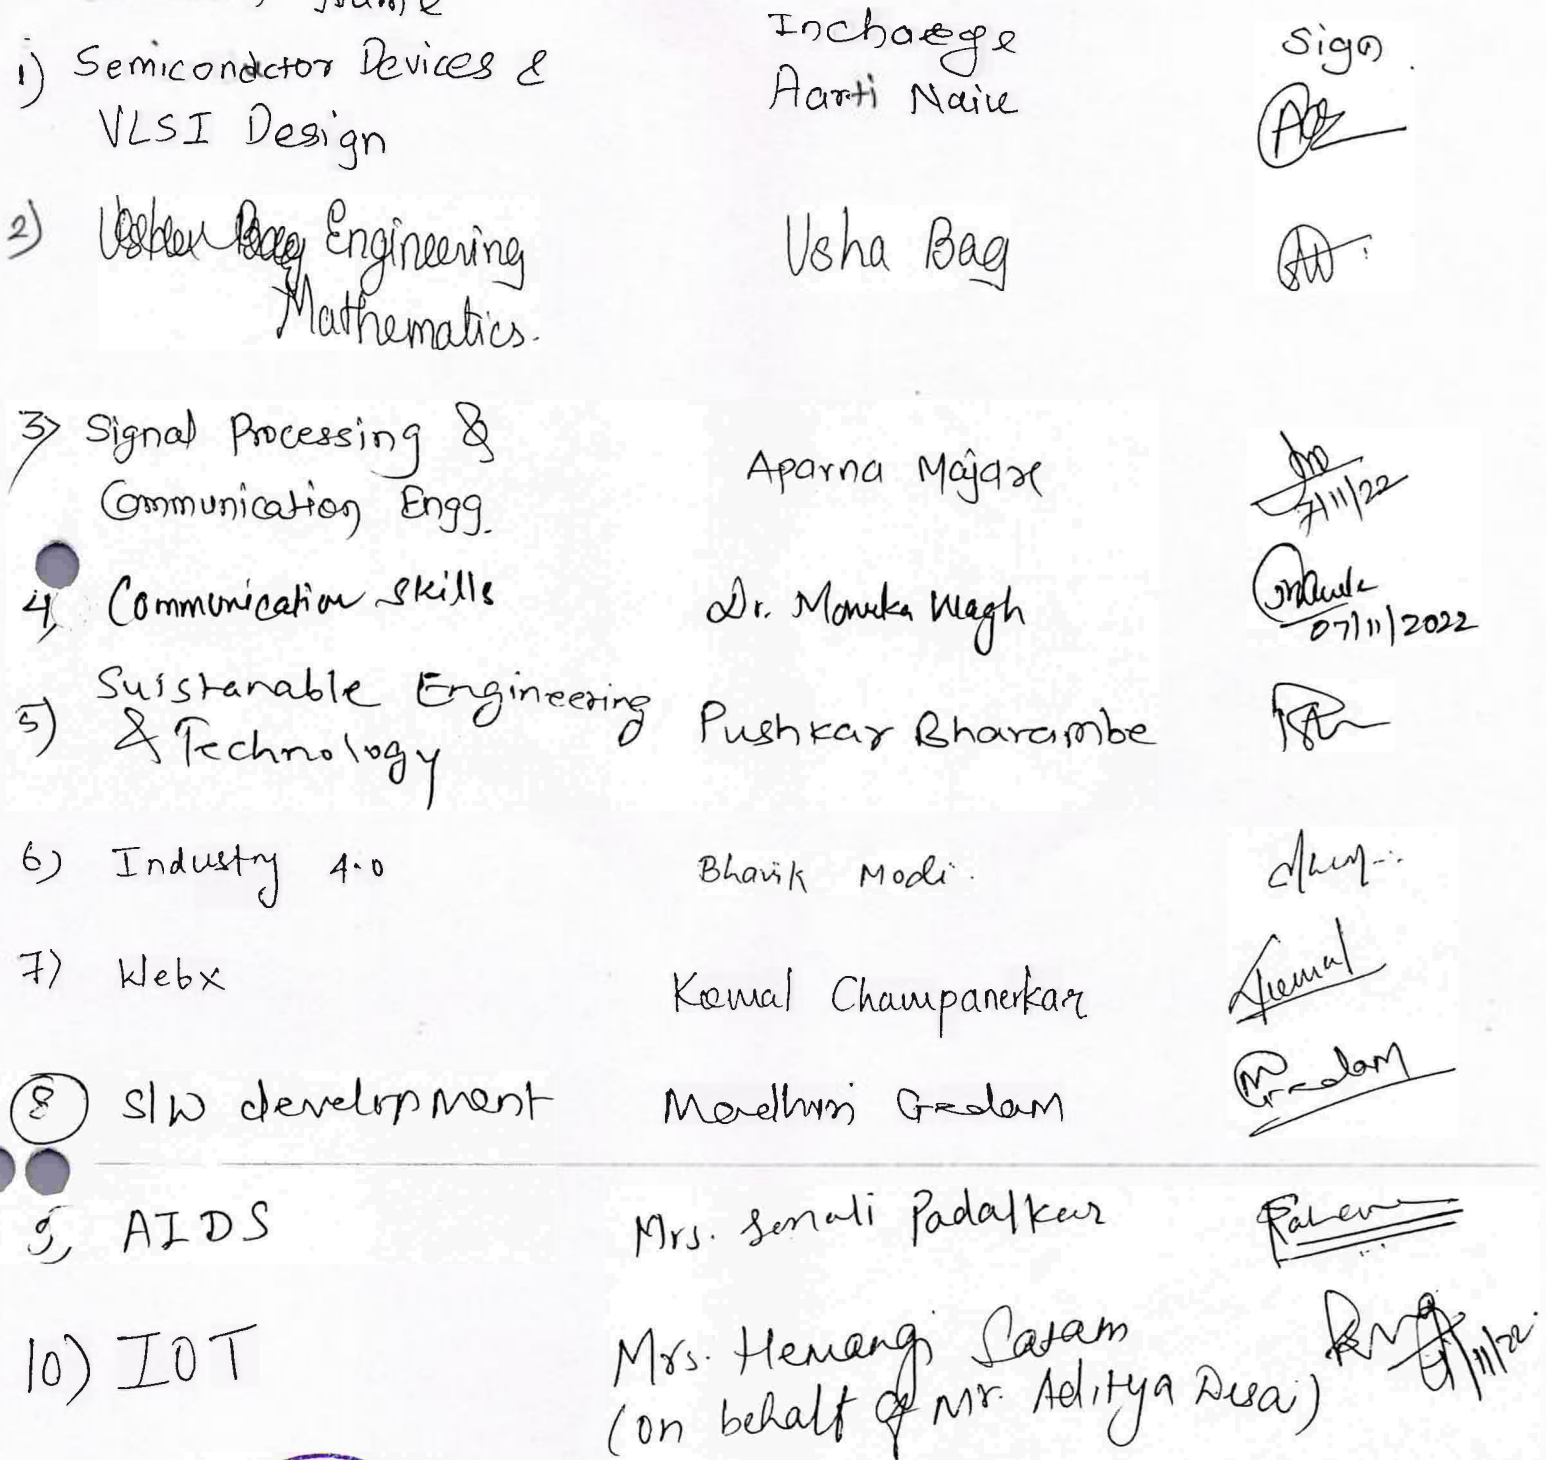 Name
Inchaege
Sign
1) Semicondctor Devices &
VLSI Design
Aarti Naik
2) Engineering
Mathematics.
Usha Bag
3) Signal Processing &
Communication Engg.
Aparna Majare
7/11/22
4) Communication Skills
Dr. Monika Wagh
07/11/2022
5) Suistanable Engineering
& Technology
Pushkar Bharambe
6) Industry 4.0
Bhavik Modi.
7) Webx
Komal Champanerkar
Komal
8 S/W development
Madhuri Gedam
MGedam
9, AIDS
Mrs. Sonali Padalkar
10) IOT
Mrs. Hemangi Satam
(on behalf of Mr. Aditya Desai)